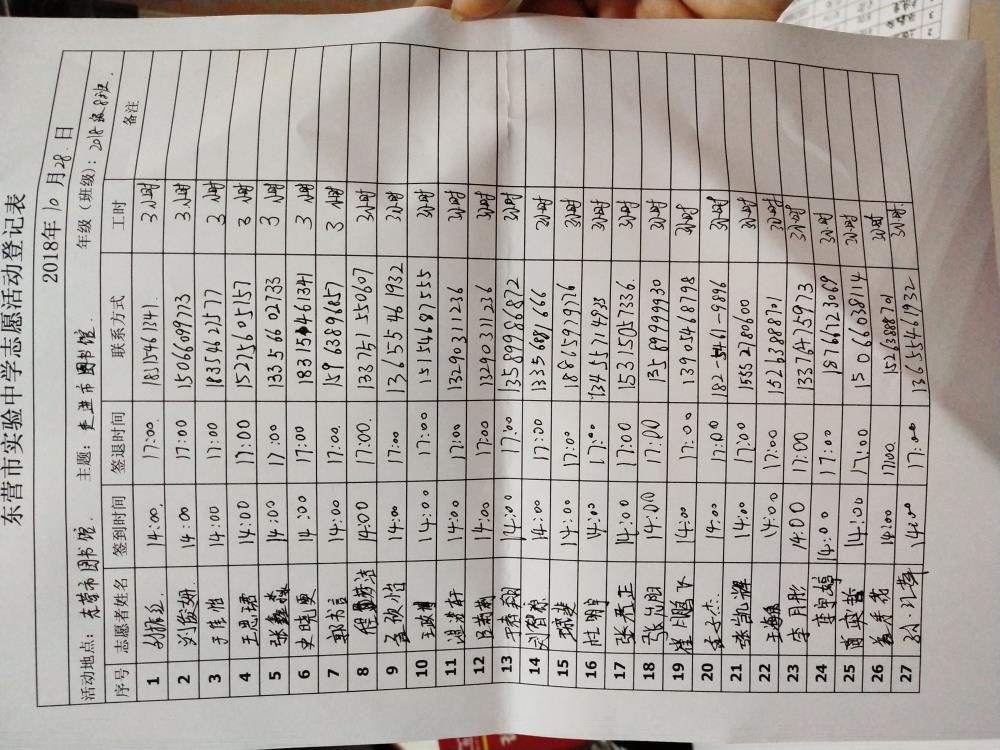 东营市实验中学志愿活动登记表
2018年 10 月 28 日
活动地点：东营市图书馆. 主题：走进市图书馆. 年级（班级）：2018级8班.
序号 志愿者姓名 签到时间 签退时间 联系方式 工时 备注
1 14:00. 17:00. 18115461341. 3小时
2 刘俊妍 14:00 17:00 15066609773 3小时
3 于佳惟 14:00 17:00 18354621577 3小时
4 王思珺 14:00 17:00 15275605157 3小时
5 张鑫淼 14:00 17:00 13356602733 3小时
6 史晓更 14:00 17:00 3小时
7 郭书言 14:00 17:00. 15963896857 3小时
8 14:00 17:00. 133751550607 3小时
9 孟欣怡 14:00 17:00 13655461932 3小时
10 14:00 17:00 15154687555 3小时
11 14:00 17:00 13290311236 3小时
12 吕荣荆 14:00 17:00 13290311236 3小时
13 于春翔 14:00 17:00 13589986872 3小时
14 刘智源 14:00 17:00 13356681666 3小时
15 14:00 17:00 18865797976 3小时
16 杜明宇 14:00 17:00 13455714923 3小时
17 张君正 14:00 17:00 15315057336. 3小时
18 14:00 17:00 13589999930 3小时
19 崔鹏飞 14:00 17:00 13905468798 3小时
20 14:00 17:00 182-5461-9896 3小时
21 张凯辉 14:00 17:00 15552780600 3小时
22 14:00 17:00 15263888701 3小时
23 李月彤 14:00 17:00 13376475973 3小时
24 14:00 17:00 18766723069 3小时
25 14:00 17:00 15066038114 3小时
26 14:00 17:00. 15263888701 3小时
27 14:00 17:00 13655461932 3小时.